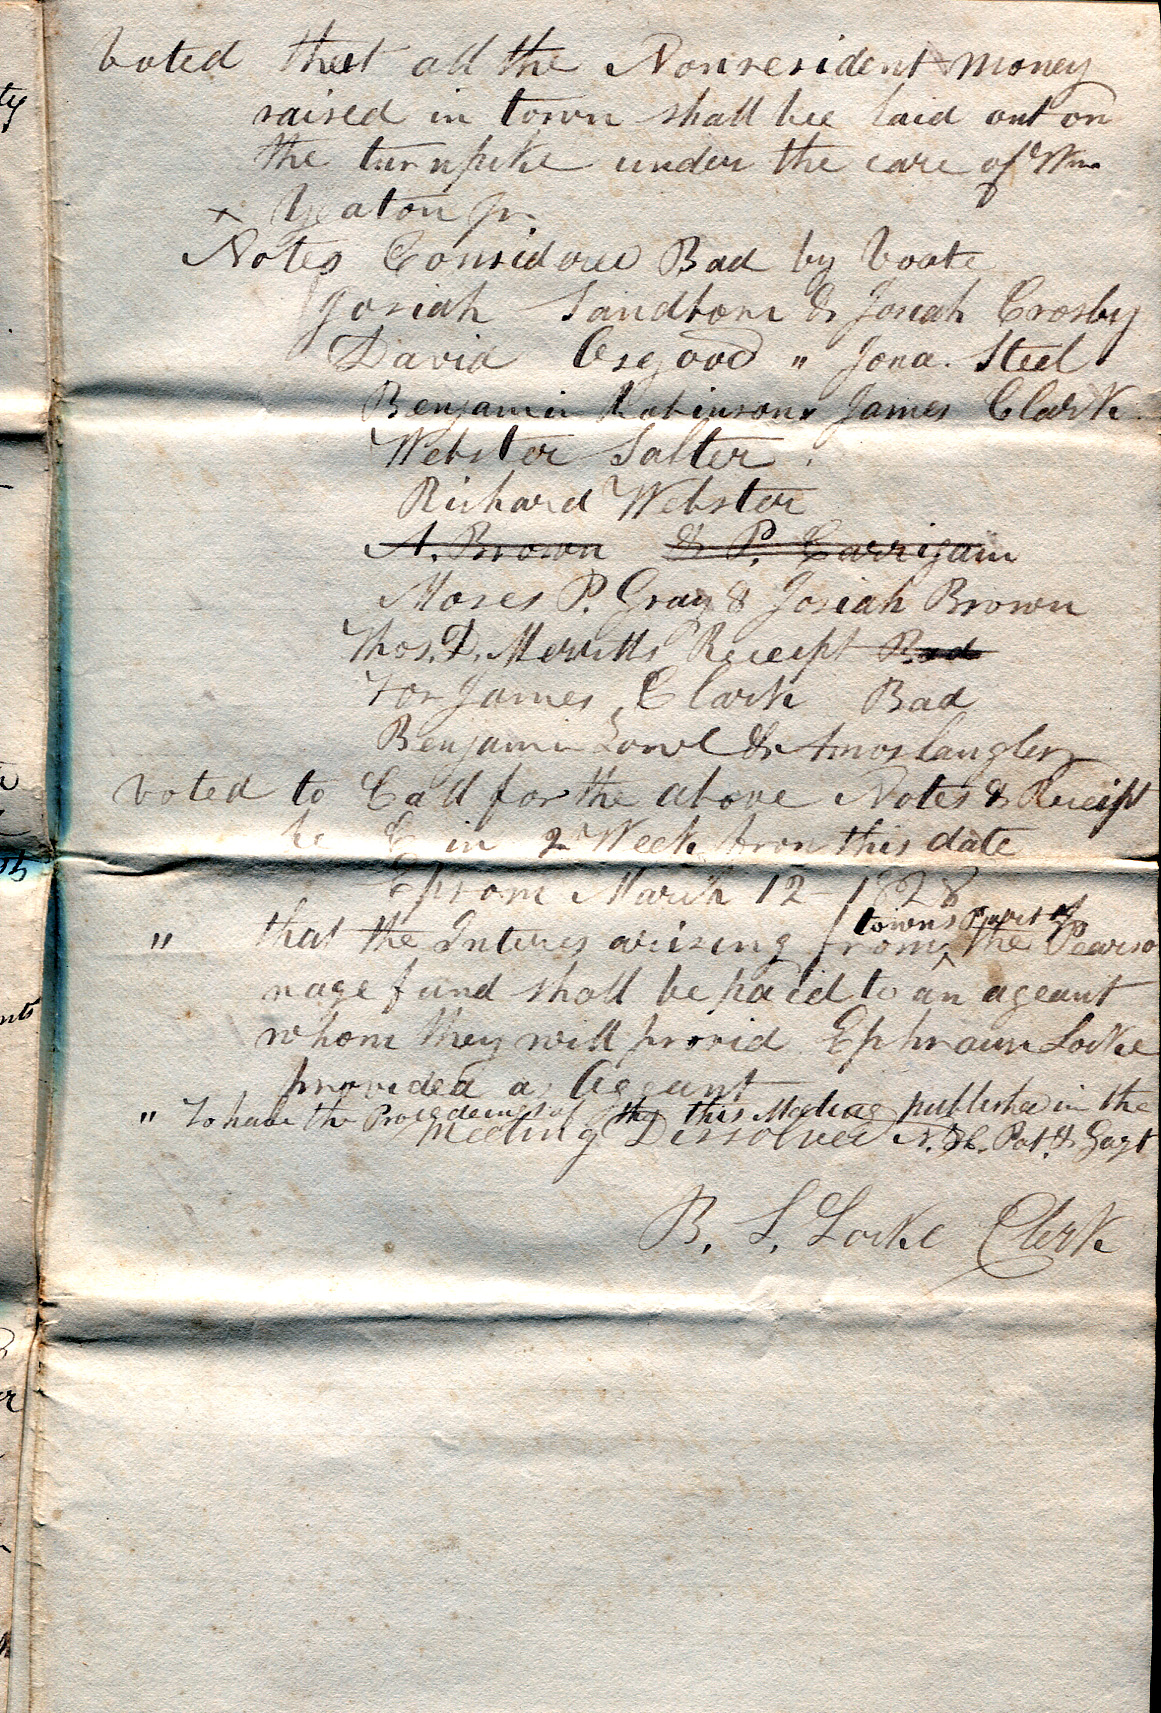 Voted that all the Nonresident money
raised in town shall bee laid out on
the turnpike under the care of Wm
x Yeaton Jr.
Notes Considered Bad by Voate
Josiah Sandborn & Josiah Crosby
David Osgood " Jona. Steel
Benjamin Robinson & James Clark
Webster Salter.
Richard Webster
A. Brown & P. Carrigain
Moses P. Gray & Josiah Brown
Thos. D. Merritts Receipt Bad
For James Clark Bad
Benjamin Lovel & Amos Langley
Voted to Call for the above Notes & Receipt
be in 2 Week from this date
Eprom March 12 - 1828
towns Part of
" that the Interes arizing from ^ the Pearso
nage fund shall be paid to an ageant
whom they will provid Ephraim Locke
provided a Ageant
" To have the Proigdeings of the this Meeting published in the
meeting Dissolved N. H. Pat. & Gazt
B. L. Locke Clerk